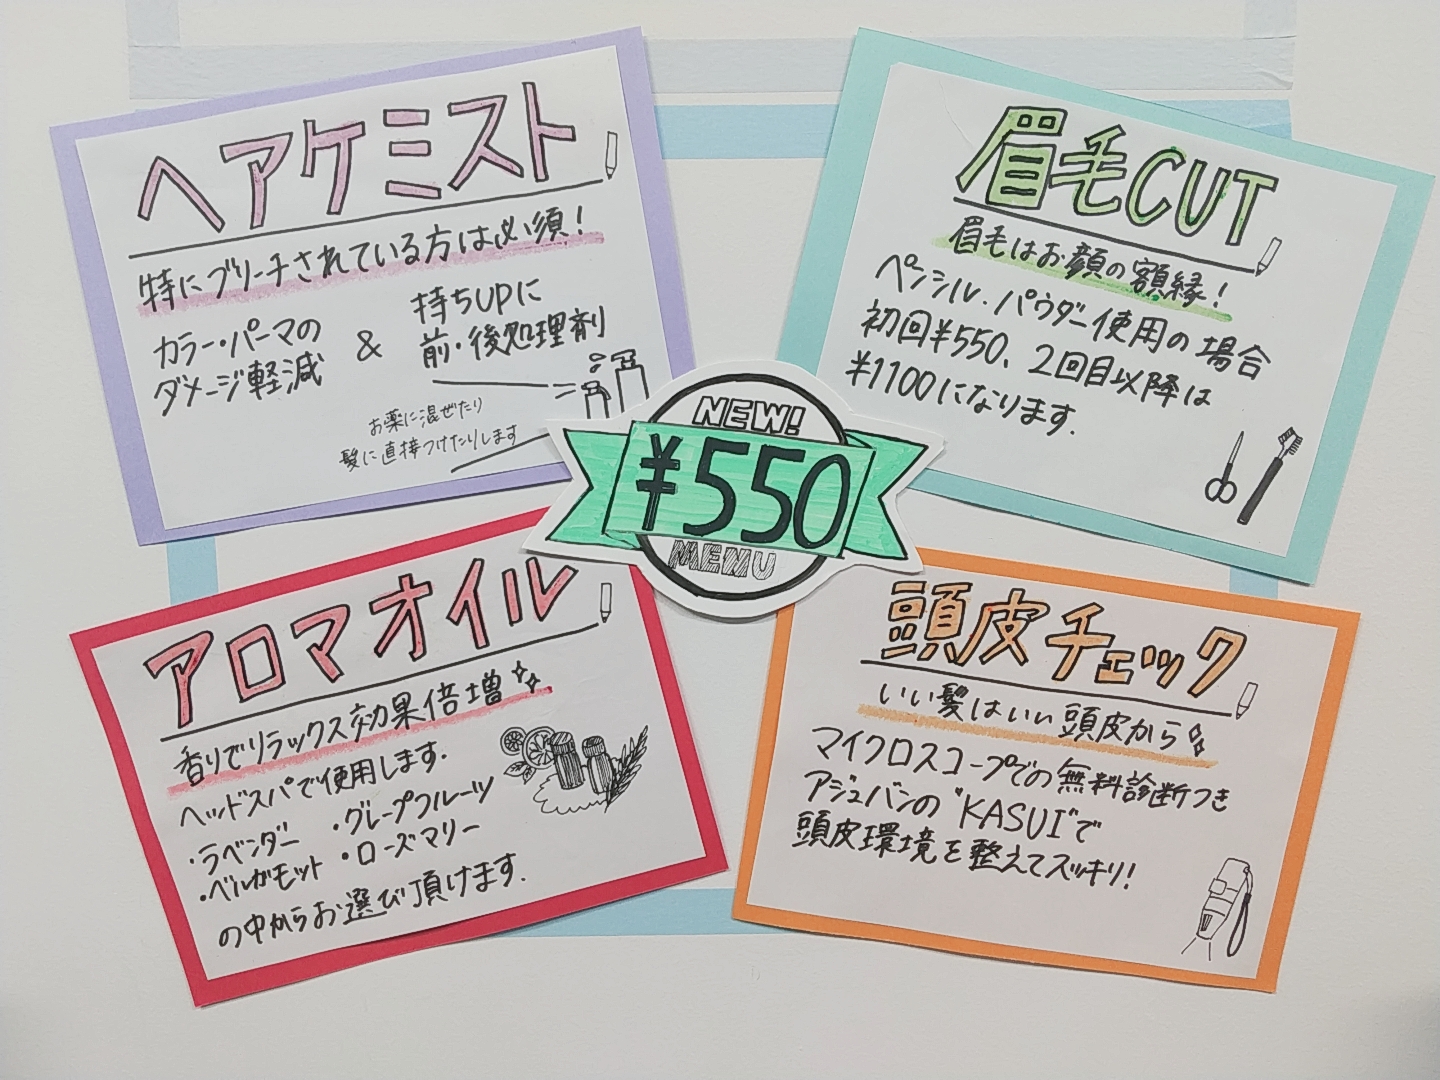 ヘアケミスト
特にブリーチされている方は必須!
カラー・パーマの
ダメージ軽減
&
持ちUPに
前・後処理剤
お薬に混ぜたり
髪に直接つけたりします
眉毛CUT
眉毛はお顔の額縁!
ペンシル・パウダー使用の場合
初回¥550、2回目以降は
¥1100になります.
NEW!
¥550
MENU
アロマオイル
香りでリラックス効果倍増
ヘッドスパで使用します.
・ラベンダー ・グレープフルーツ
・ベルガモット ・ローズマリー
の中からお選び頂けます.
頭皮チェック
いい髪はいい頭皮から
マイクロスコープでの無料診断つき
アジュバンの"KASUI"で
頭皮環境を整えてスッキリ!